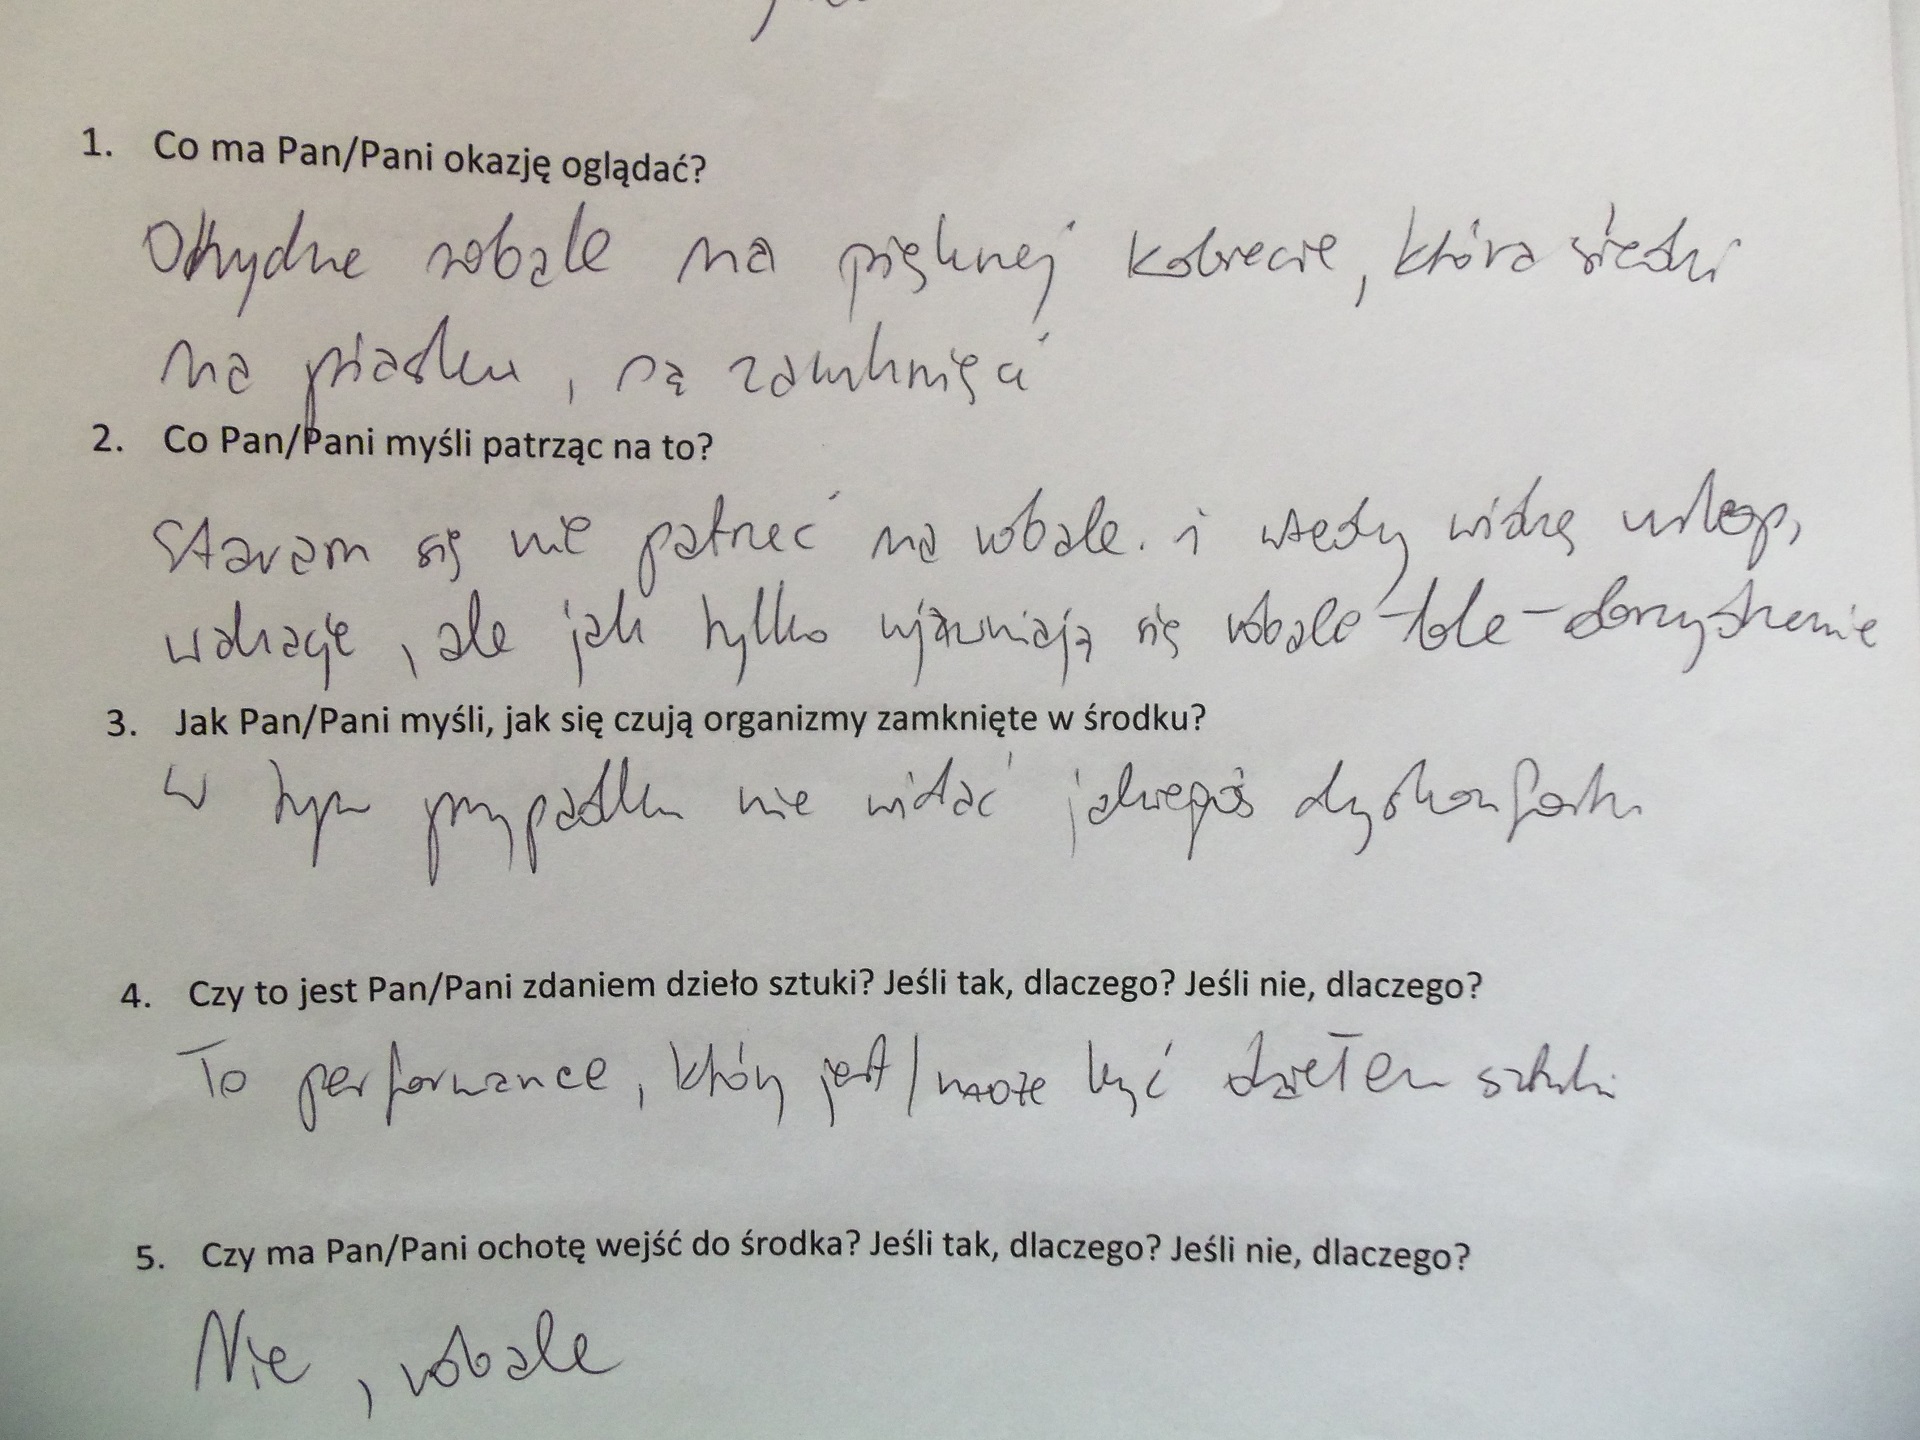 1. Co ma Pan/Pani okazję oglądać?
Ohydne robale na pięknej kobiecie, która siedzi
na piasku, są zamknięci
2. Co Pan/Pani myśli patrząc na to?
Staram się nie patrzeć na robale. i wtedy widzę urlop,
wakacje, ale jak tylko ujawniają się robale - ble - obrzydzenie
3. Jak Pan/Pani myśli, jak się czują organizmy zamknięte w środku?
W tym przypadku nie widać jakiegoś dyskomfortu
4. Czy to jest Pan/Pani zdaniem dzieło sztuki? Jeśli tak, dlaczego? Jeśli nie, dlaczego?
To performance, który jest/może być dziełem sztuki
5. Czy ma Pan/Pani ochotę wejść do środka? Jeśli tak, dlaczego? Jeśli nie, dlaczego?
Nie, robale